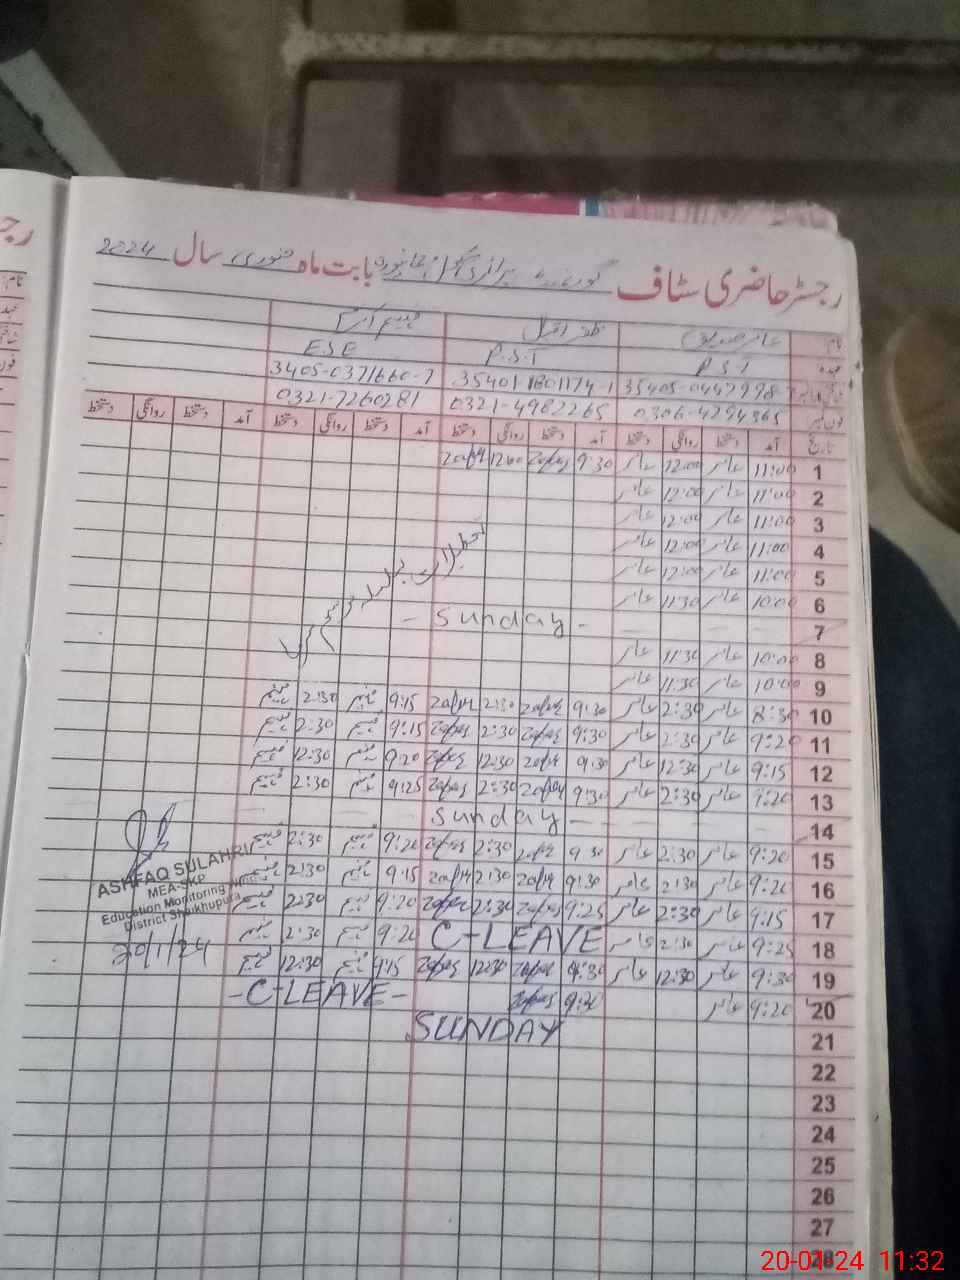 رجسٹر حاضری سٹاف گورنمنٹ پرائمری سکول بابت ماہ جنوری سال 2024
نام:
عہدہ P.S.T P.S.T E.S.E
35405-0447998- 35401-1801174-1 3405-0371660-7
فون نمبر 0306-4294365 0321-4982265 0321-7260281
تاریخ آمد دستخط روانگی دستخط آمد دستخط روانگی دستخط آمد دستخط روانگی دستخط آمد دستخط روانگی دستخط
1 11:00 عامر 12:00 عامر 9:30 Zafar 12:00 Zafar
2 11:00 عامر 12:00 عامر
3 11:00 عامر 12:00 عامر
4 11:00 عامر 12:00 عامر
5 11:00 عامر 12:00 عامر
6 10:00 عامر 11:30 عامر
7 - Sunday -
8 10:00 عامر 11:30 عامر
9 10:00 عامر 11:30 عامر
تعطیلات بسلسلہ موسم سرما
10 8:30 عامر 2:30 عامر 9:30 Zafar 2:30 Zafar 9:15 2:30
11 9:20 عامر 2:30 عامر 9:30 Zafar 2:30 Zafar 9:15 2:30
12 9:15 عامر 12:30 عامر 9:30 Zafar 12:30 Zafar 9:20 12:30
13 9:20 عامر 2:30 عامر 9:30 Zafar 2:30 Zafar 9:25 2:30
14 Sunday
15 9:20 عامر 2:30 عامر 9:30 Zafar 2:30 Zafar 9:20 2:30
16 9:20 عامر 2:30 عامر 9:30 Zafar 2:30 Zafar 9:15 2:30
17 9:15 عامر 2:30 عامر 9:25 Zafar 2:30 Zafar 9:20 2:30
18 9:25 عامر 2:30 عامر C-LEAVE 9:20 2:30
19 9:30 عامر 12:30 عامر 9:30 Zafar 12:30 Zafar 9:15 12:30
20 9:20 عامر 9:30 Zafar -C-LEAVE-
21 SUNDAY
22
23
24
25
26
27
28
ASHFAQ SULAHRI
MEA-SKP
Education Monitoring
District Shaikhupura
20/1/24
20-01-24 11:32